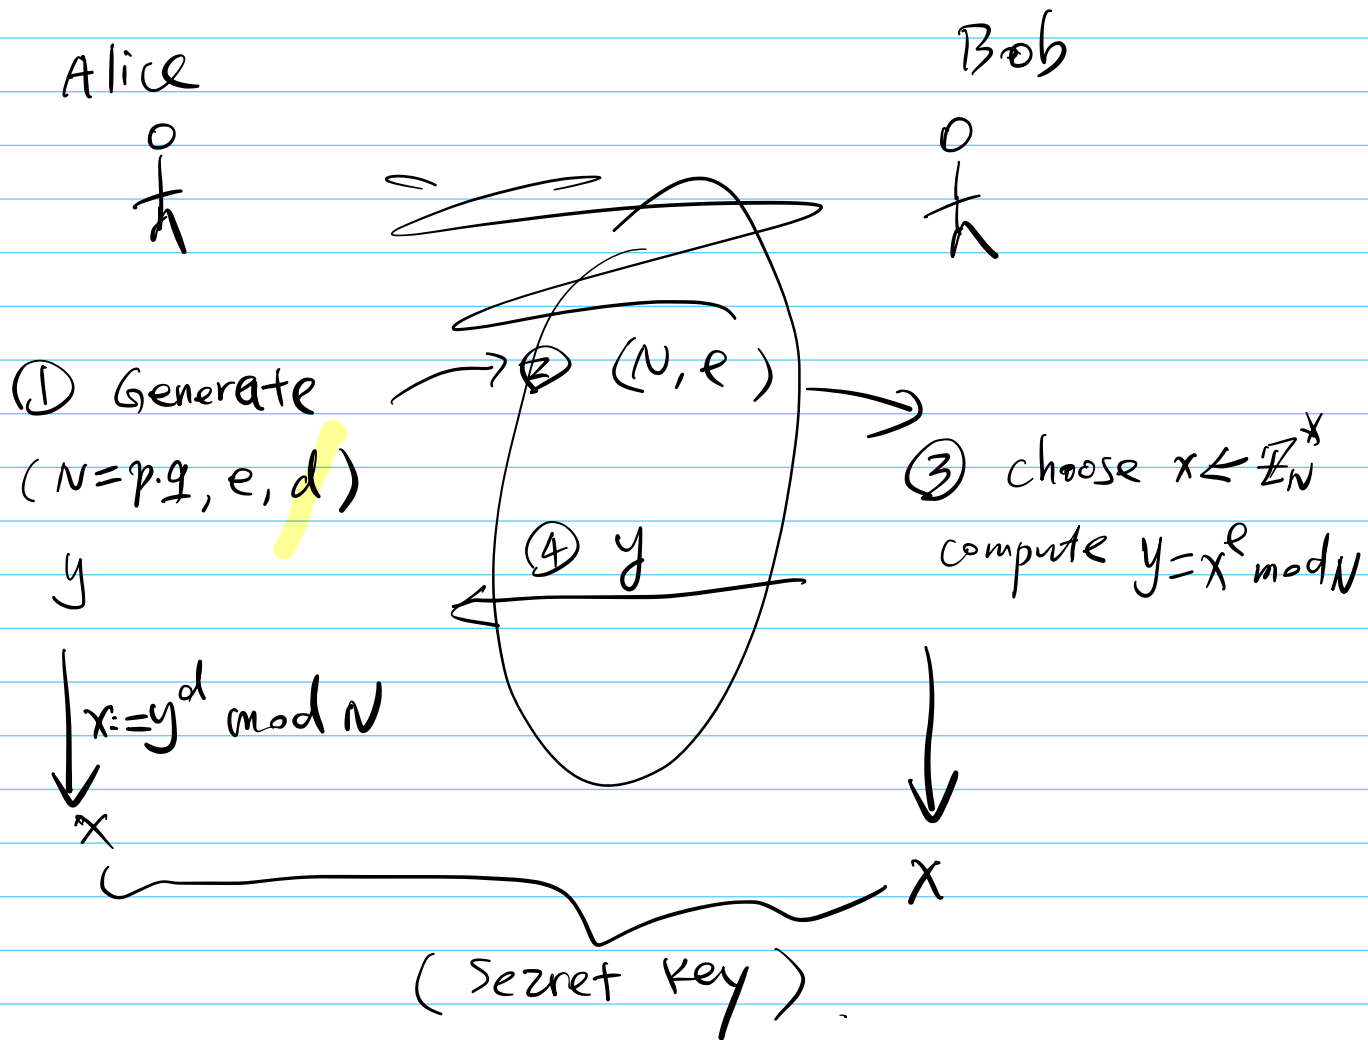 Alice
Bob
① Generate
② (N, e)
(N=p.q, e, d)
③ choose x ← ℤ_N^*
compute y=x^e mod N
④ y
y
x:=y^d mod N
x
x
(Seznet key).